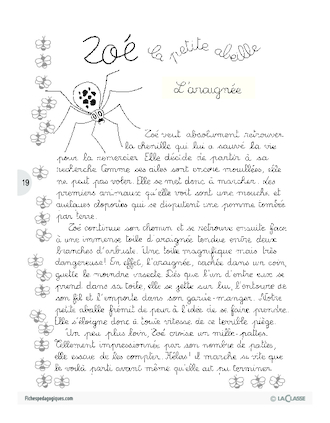 Zoé la petite abeille
L'araignée
Zoé veut absolument retrouver
la chenille qui lui a sauvé la vie
pour la remercier. Elle décide de partir à sa
recherche. Comme ses ailes sont encore mouillées, elle
ne peut pas voler. Elle se met donc à marcher. Les
premiers animaux qu'elle voit sont une mouche et
quelques cloportes qui se disputent une pomme tombée
par terre.
19
Zoé continue son chemin et se retrouve ensuite face
à une immense toile d'araignée tendue entre deux
branches d'arbuste. Une toile magnifique mais très
dangereuse ! En effet, l'araignée, cachée dans un coin,
guette le moindre insecte. Dès que l'un d'entre eux se
prend dans sa toile, elle se jette sur lui, l'entoure de
son fil et l'emporte dans son garde-manger. Notre
petite abeille frémit de peur à l'idée de se faire prendre.
Elle s'éloigne donc à toute vitesse de ce terrible piège.
Un peu plus loin, Zoé croise un mille-pattes.
Tellement impressionnée par son nombre de pattes,
elle essaie de les compter. Hélas ! il marche si vite que
le voilà parti avant même qu'elle ait pu terminer.
Fichespedagogiques.com
© LA CLASSE